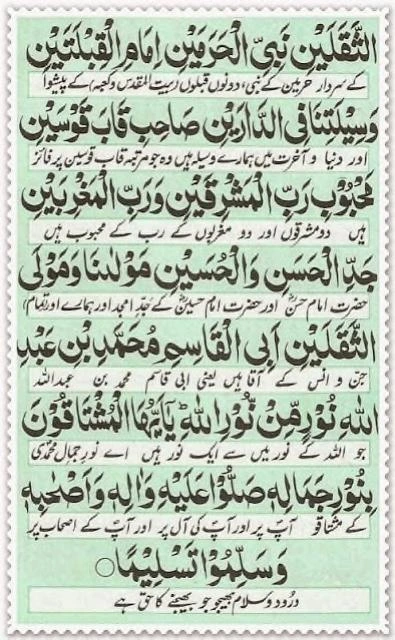 الثَّقَلَيْنِ نَبِيِّ الْحَرَمَيْنِ اِمَامِ الْقِبْلَتَيْنِ
کے سردار حرمین کے نبی، دونوں قبلوں (بیت المقدس و کعبہ) کے پیشوا
وَسِيْلَتِنَا فِى الدَّارَيْنِ صَاحِبِ قَابَ قَوْسَيْنِ
اور دنیا و آخرت میں ہمارے وسیلہ ہیں وہ جو مرتبہ قاب قوسین پر فائز
مَحْبُوْبِ رَبِّ الْمَشْرِقَيْنِ وَرَبِّ الْمَغْرِبَيْنِ
ہیں دو مشرقوں اور دو مغربوں کے رب کے محبوب ہیں
جَدِّ الْحَسَنِ وَالْحُسَيْنِ مَوْلٰنَا وَمَوْلَى
حضرت امام حسنؓ اور حضرت امام حسینؓ کے جدِّ امجد اور ہمارے اور (تمام)
الثَّقَلَيْنِ اَبِى الْقَاسِمِ مُحَمَّدِ بْنِ عَبْدِ
جن و انس کے آقا ہیں یعنی ابی قاسم محمد بن عبداللہ
اللهِ نُوْرٍ مِّنْ نُّوْرِ اللهِ يٰاَيُّهَا الْمُشْتَاقُوْنَ
جو اللہ کے نور میں سے ایک نور ہیں اے نورِ جمالِ محمدی
بِنُوْرِ جَمَالِهٖ صَلُّوْا عَلَيْهِ وَاٰلِهٖ وَاَصْحٰبِهٖ
کے مشتاقو آپ پر اور آپ کی آل پر اور آپ کے اصحاب پر
وَسَلِّمُوْا تَسْلِيْمًا ○
درود و سلام بھیجو جو بھیجنے کا حق ہے